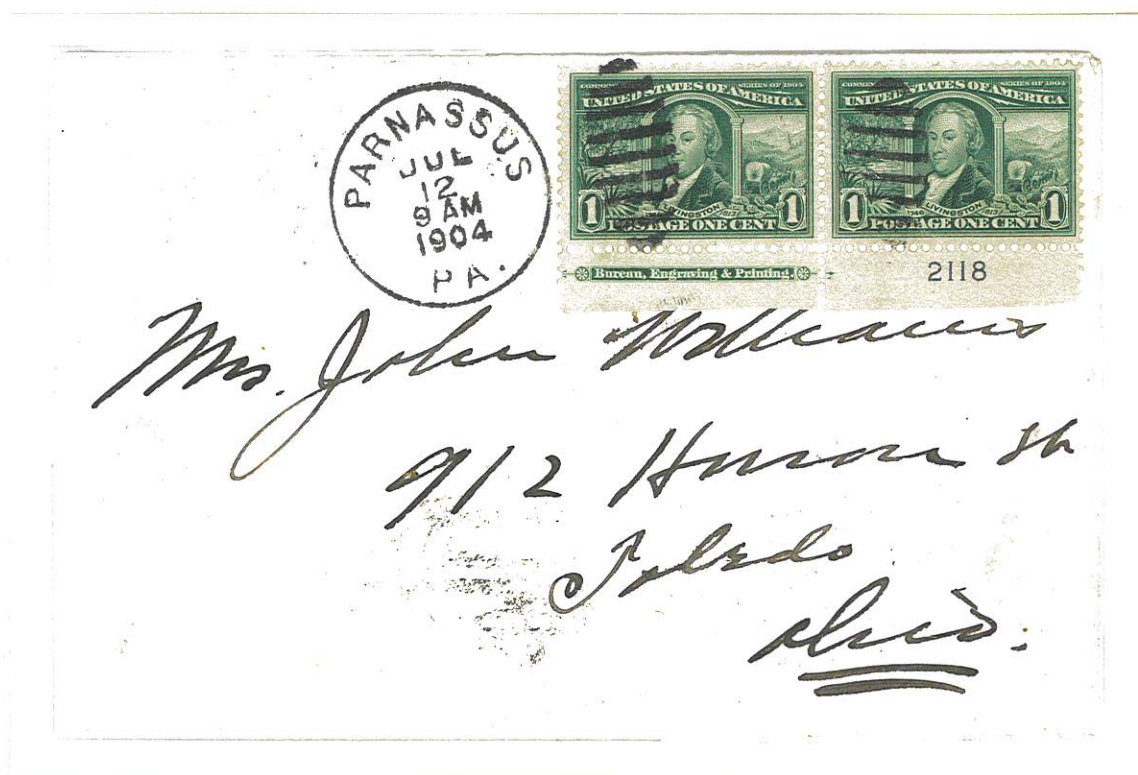 PARNASSUS
JUL
12
9 AM
1904
PA.
COMMEMORATIVE SERIES OF 1904
UNITED STATES OF AMERICA
LIVINGSTON
1 POSTAGE ONE CENT 1
COMMEMORATIVE SERIES OF 1904
UNITED STATES OF AMERICA
1746 LIVINGSTON 1813
1 POSTAGE ONE CENT 1
Bureau, Engraving & Printing.
2118
Mrs. John Williams
912 Huron St
Toledo
Ohio.